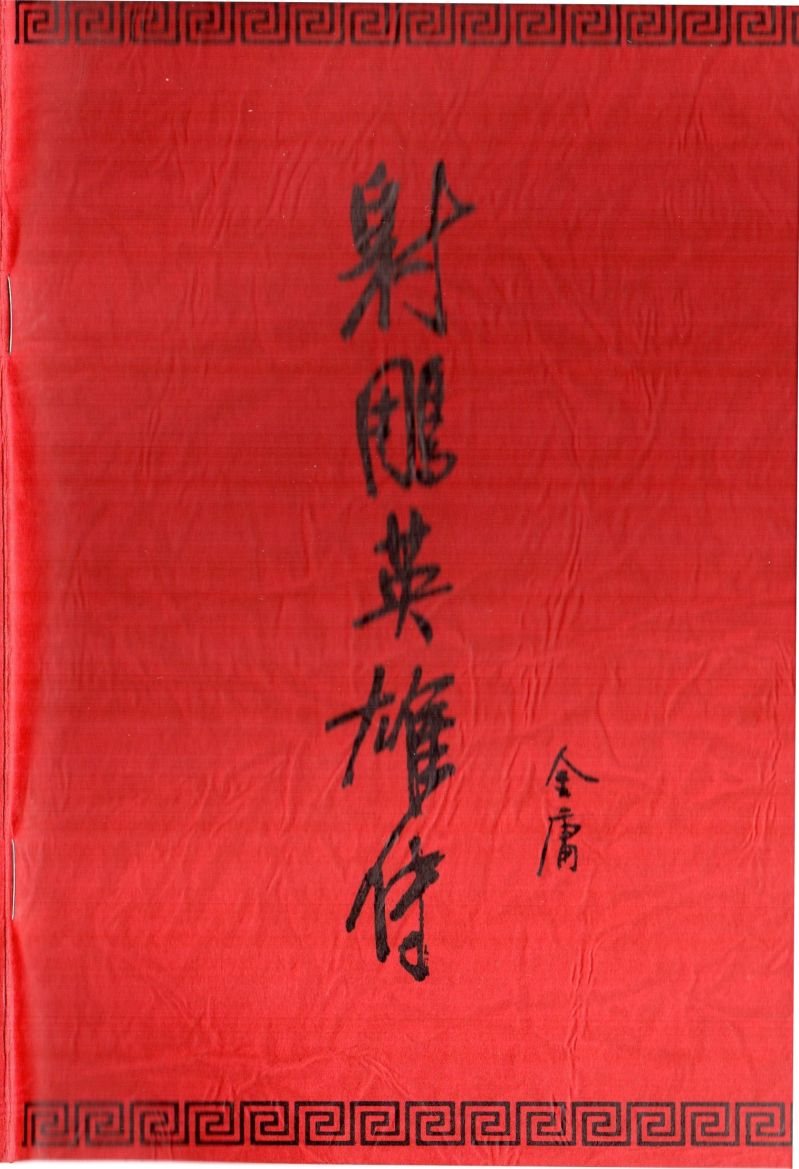 射鵰英雄傳
金庸